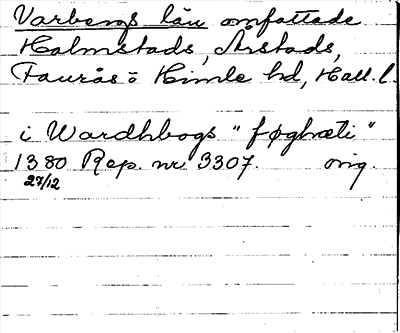 Varbergs län omfattade
Halmstads, Årstads,
Faurås o Himle hd, Hall. l.
i Wardhbogs "føghæti"
1380 Rep. nr 3307. orig.
27/12